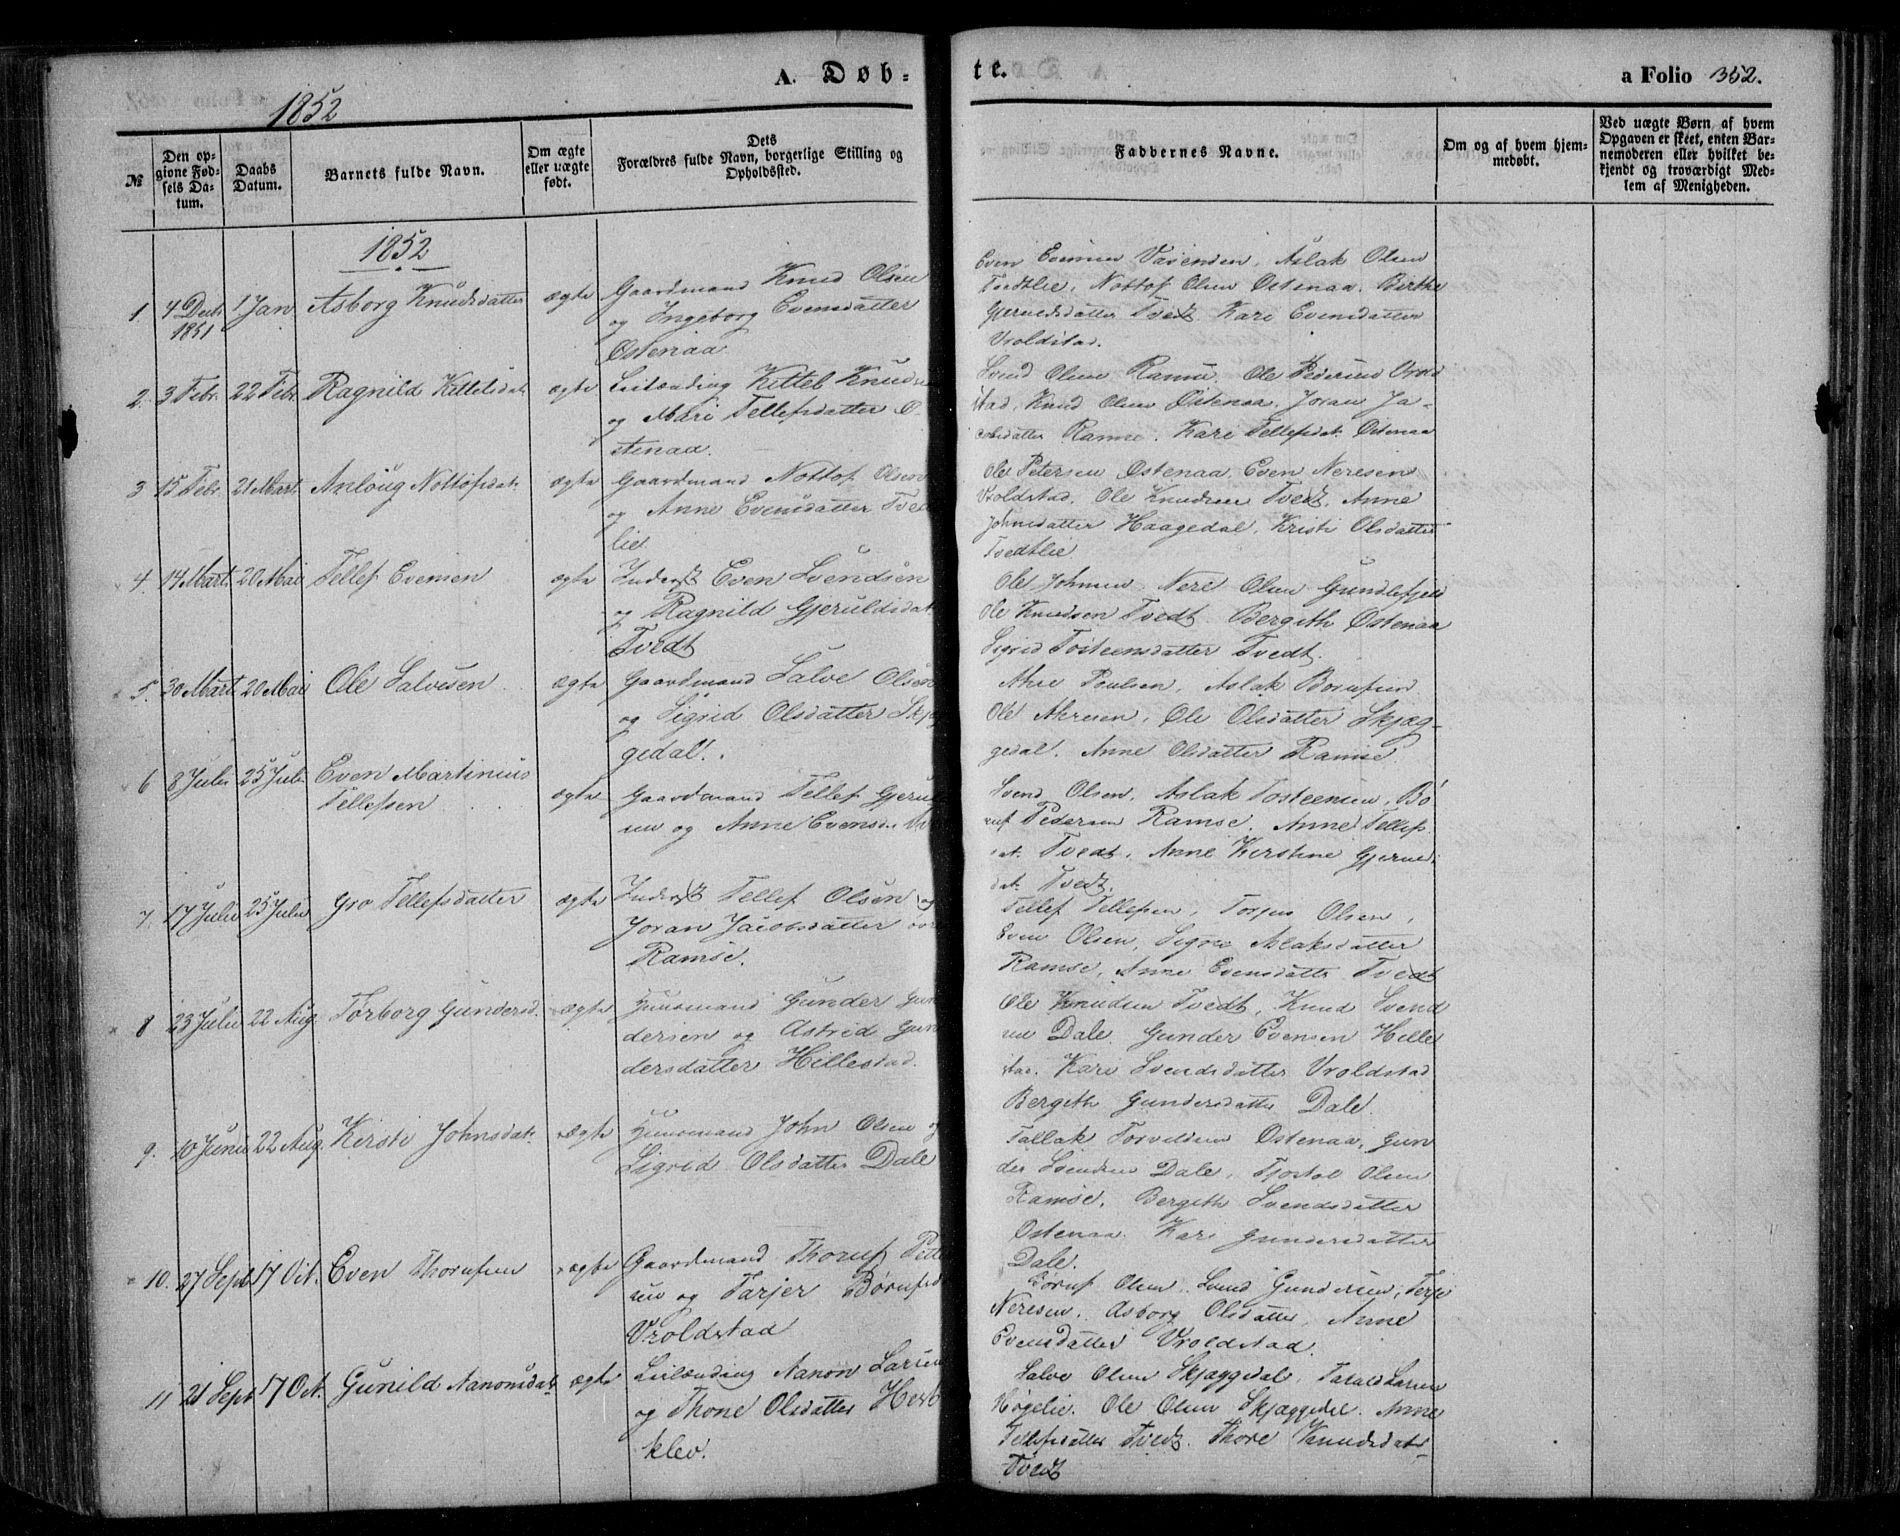 A. Døb-
te.
a Folio 352.
1852
№
Den opgivne Fødsels Datum.
Daabs Datum.
Barnets fulde Navn.
Om ægte eller uægte født.
Dets Forældres fulde Navn, borgerlige Stilling og Opholdssted.
Faddernes Navne.
Om og af hvem hjemmedøbt.
Ved uægte Børn af hvem Opgaven er skeet, enten Barnemoderen eller hvilket bekjendt og troværdigt Medlem af Menigheden.
1852
1. 4 Decbr 1851 1 Jan Asborg Knudsdatter ægte
Gaardmand Knud Olsen
og Ingeborg Evensdatter
Østenaa
Even Evensen Aslak Olsen
Tvedtlie, Nottof Olsen Østenaa. Birthe
Tvedt. Kari Evensdatter
Vroldstad.
2. 3 Febr. 22 Febr Ragnild Kittelsdat. ægte
Leilænding Kittel Knuds
og Mari Tellefsdatter Ø
stenaa.
Svend Olsen Ramse. Ole Pedersen Vrold
stad, Knud Olsen Østenaa. Joran Ja-
cobsdatter Ramse. Kari Tellefsdat. Østenaa
3 15 Febr. 21 Mart. Anloug Nottofsdat. ægte
Gaardmand Nottof Olsen
og Anne Evensdatter Tved
lie
Ole Petersen Østenaa, Even Neresen
Vroldstad, Ole Knudsen Tvedt, Anne
Johnsdatter Haagedal, Kristi Olsdatter
Tvedtlie
4. 14 Mart. 20 Mai Tellef Evensen ægte
Inderst Even Svendsen
og Ragnild Gjeruldsdat
Tvedt
Ole Johnsen Nere Olsen Gundlefjeld
Ole Knudsen Tvedt. Bergith Østenaa
Sigrid Tosteensdatter Tvedt.
5. 30 Mart 20 Mai Ole Salvesen ægte
Gaardmand Salve Olsen
og Sigrid Olsdatter Skjæg
gedal.
Ahre Poulsen, Aslak Børufsen
Ole Ahresen, Ole Olsdatter Skjæg-
gedal. Anne Olsdatter Ramse.
6 8 Juli 25 Juli Even Martinius
Tellefsen ægte
Gaardmand Tellef Gjeru
sen og Anne Evensd.
Svend Olsen, Aslak Tosteensen, Bø
ruf Pedersen Ramse. Anne Tellefs
dat. Tvedt, Anne Kirstine
dat. Tvedt.
7. 17 Juli 25 Juli Gro Tellefsdatter ægte
Inderst Tellef Olsen og
Joran Jacobsdatter øvre
Ramse.
Tellef Tellefsen, Torjus Olsen,
Even Olsen, Signe Aslaksdatter
Ramse, Anne Evensdatter Tvedt
8 23 Juli 22 Aug. Torborg Gundersd. ægte
Huusmand Gunder Gun
dersen og Astrid Gun
dersdatter Hillestad.
Ole Knudsen Tvedt, Knud Svend
sen Dale. Gunder Evensen Hille
stad. Kari Svendsdatter Vroldstad
Bergith Gundersdatter Dale.
9. 10 Juni 22 Aug. Kirsti Johnsdat. ægte
Huusmand John Olsen og
Sigrid Olsdatter Dale
Tallak Torvildsen Østenaa, Gun
der Svendsen Dale, Tjostol Olsen
Ramse, Bergith Svendsdatter
Østenaa. Kari Gundersdatter
Dale.
10. 27 Sept 17 Oct. Even Thorufsen ægte
Gaardmand Thoruf
sen og Tarjer Børufsd
Vroldstad
Børuf Olsen. Svend Gundersen, Terje
Neresen, Asborg Olsdatter, Anne
Evensdatter Vroldstad.
11 21 Sept 17 Oct. Gunild Aanonsdat ægte
Leilænding Aanon Larsen
og Thone Olsdatter
klev.
Salve Olsen Skjæggedal, Tarald Larsen
Høgelie. Ole Olsen Skjæggedal. Anne
Tellefsdatter Tvedt. Thore Knudsdat
Tvedt